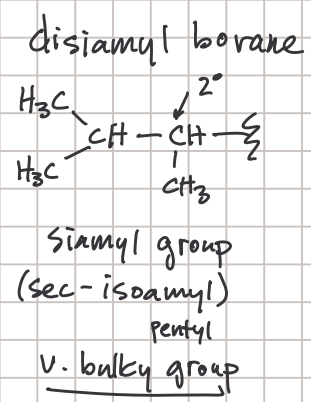 disiamyl borane
2°
H₃C
CH – CH –
H₃C
CH₃
siamyl group
(sec-isoamyl)
pentyl
v. bulky group